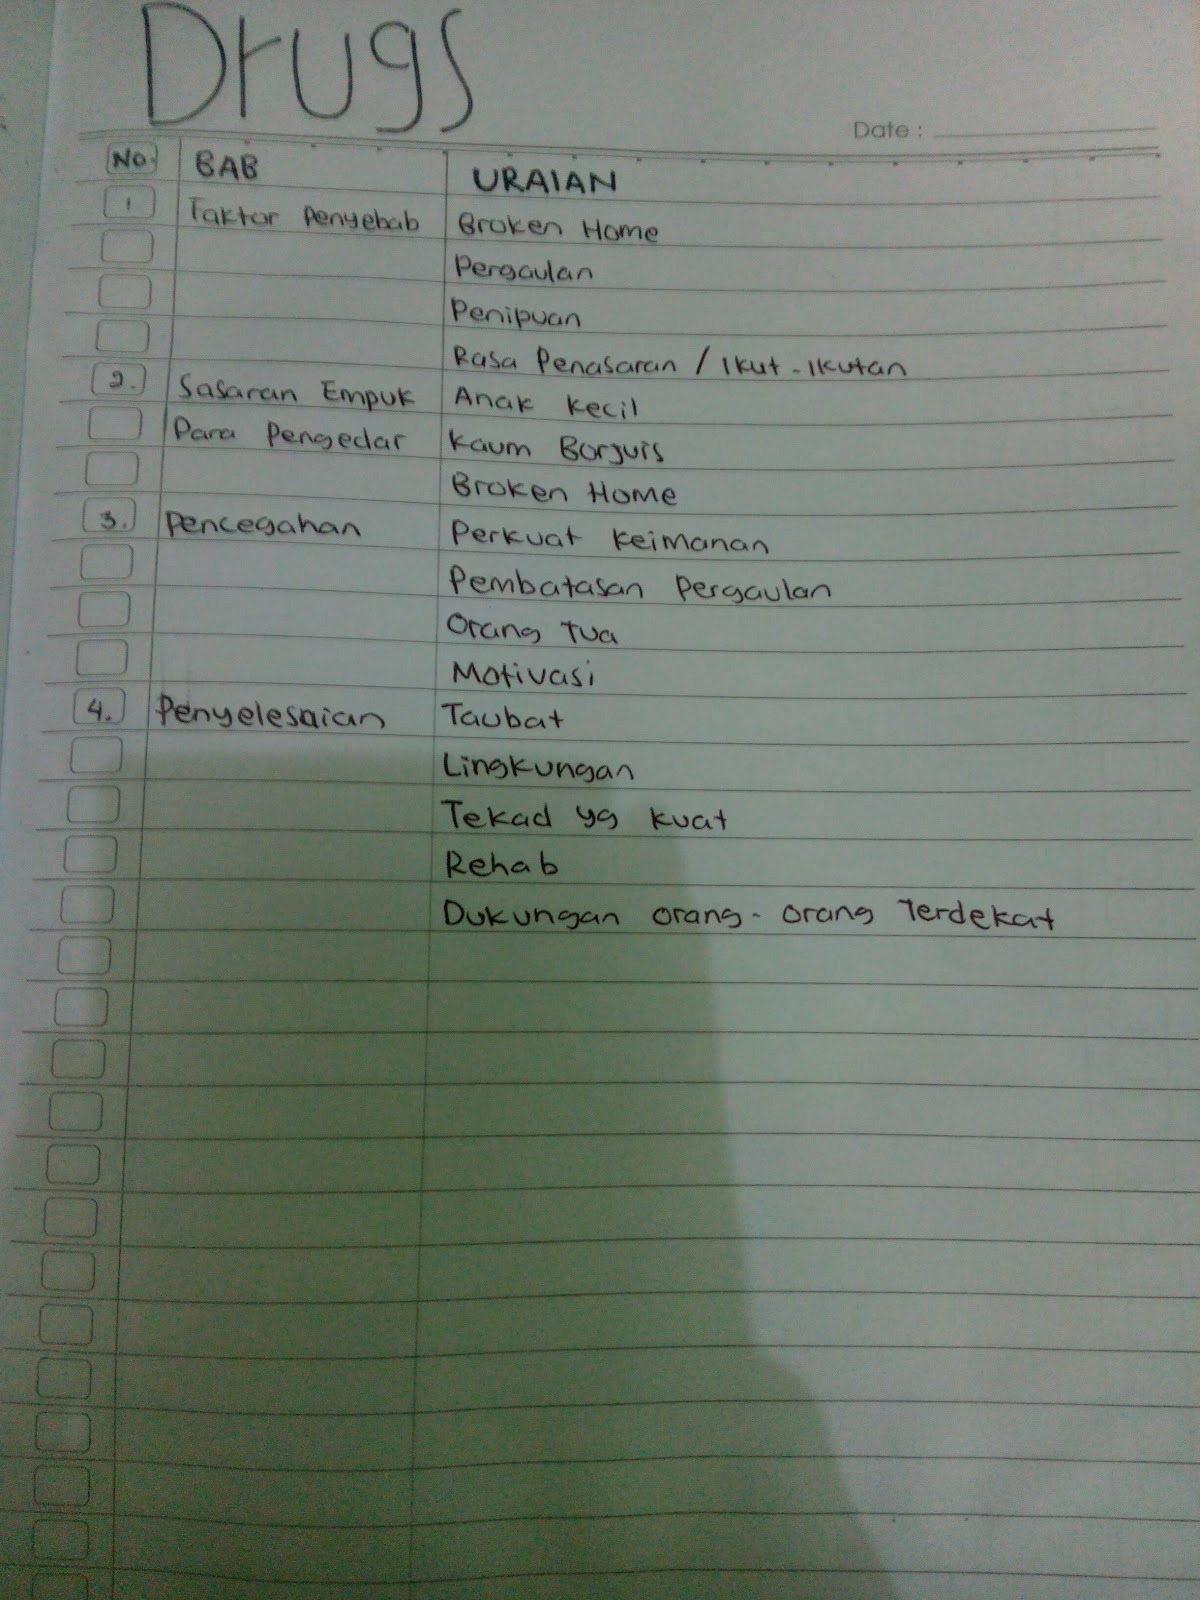 Drugs
Date :
No. BAB URAIAN
1 Faktor Penyebab Broken Home
Pergaulan
Penipuan
Rasa Penasaran / Ikut-Ikutan
2. Sasaran Empuk Anak Kecil
Para Pengedar Kaum Borjuis
Broken Home
3. Pencegahan Perkuat Keimanan
Pembatasan Pergaulan
Orang Tua
Motivasi
4. Penyelesaian Taubat
Lingkungan
Tekad yg kuat
Rehab
Dukungan orang-orang Terdekat